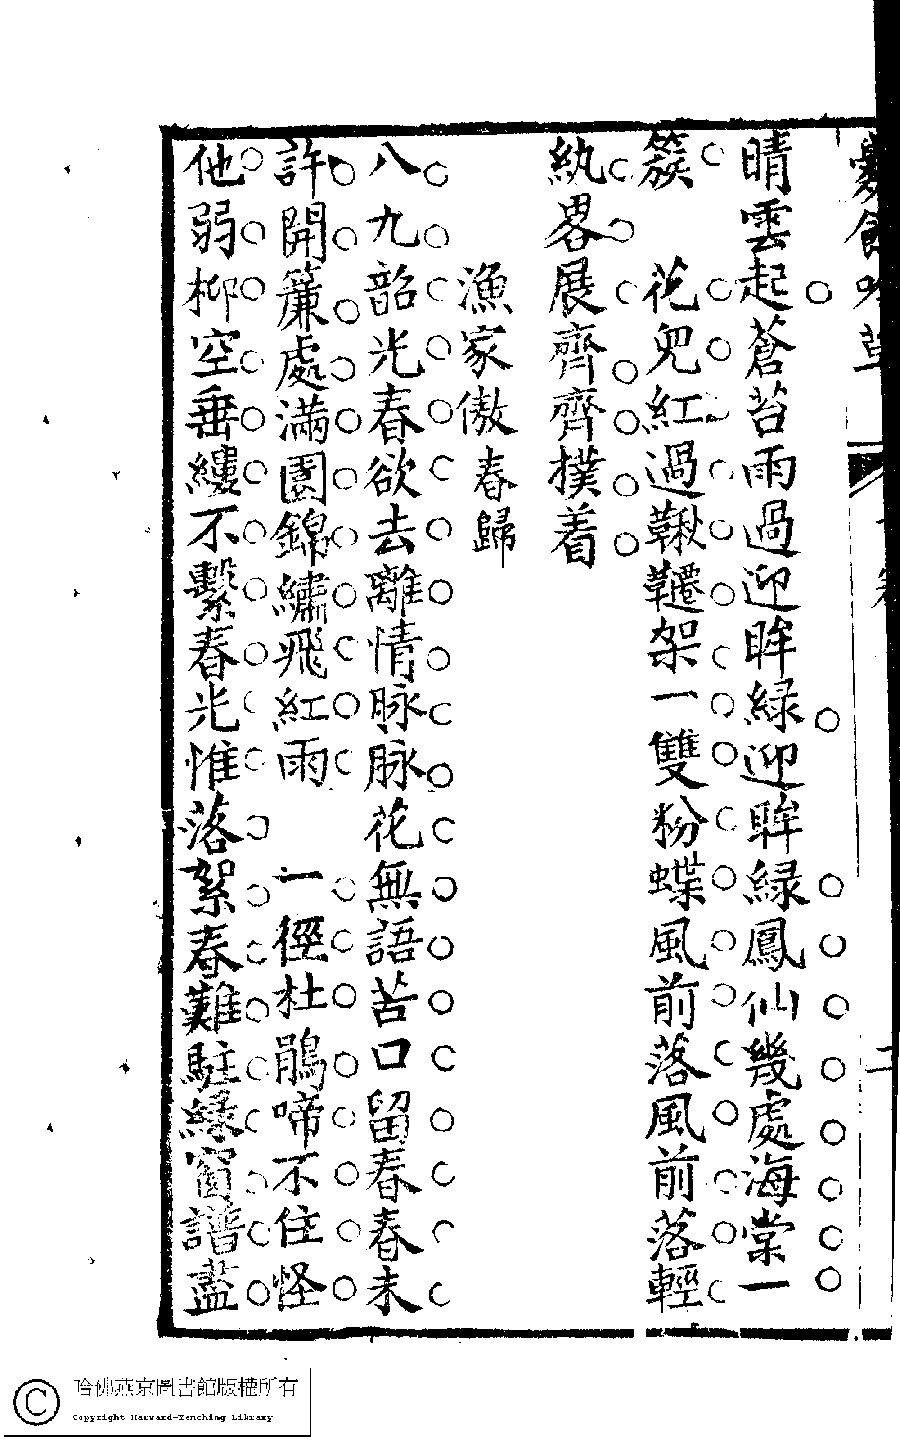 晴雲起蒼苔雨過迎眸綠迎眸綠鳳仙幾處海棠一
簇　花兜紅過鞦韆架一雙粉蝶風前落風前落輕
紈畧展齊齊撲着
漁家傲春歸
八九韶光春欲去離情脉脉花無語苦口留春春未
許開簾處滿園錦繡飛紅雨　一徑杜鵑啼不住怪
他弱柳空垂縷不繫春光惟落絮春難駐綠窗譜盡
哈佛燕京圖書館版權所有
Copyright Harvard-Yenching Library